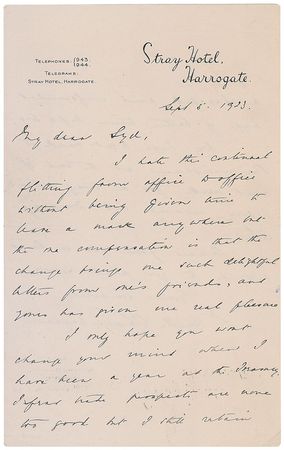 TELEPHONES: 1943
1944.
TELEGRAMS:
STRAY HOTEL, HARROGATE.
Stray Hotel,
Harrogate.
Sept 5. 1933.
My dear Syd,
I hate this continual
flitting from office to office
without being given time to
leave a mark anywhere but
the one compensation is that the
change brings one such delightful
letters from one's friends, and
yours has given me real pleasure
I only hope you wont
change your mind when I
have been a year at the Treasury
trade prospects are none
too good but I still retain